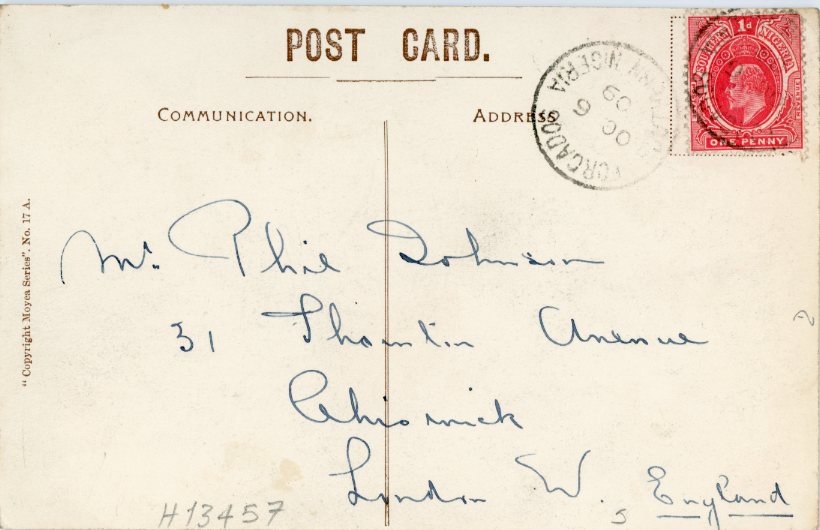 POST CARD.
COMMUNICATION.
ADDRESS
SOUTHERN NIGERIA
1d
ONE PENNY
FORCADOS
NIGERIA
OC 6
09
Mr. Phil Johnson
31 Thornton Avenue
Chiswick
London W. England
"Copyright Moyea Series". No. 17 A.
H13457